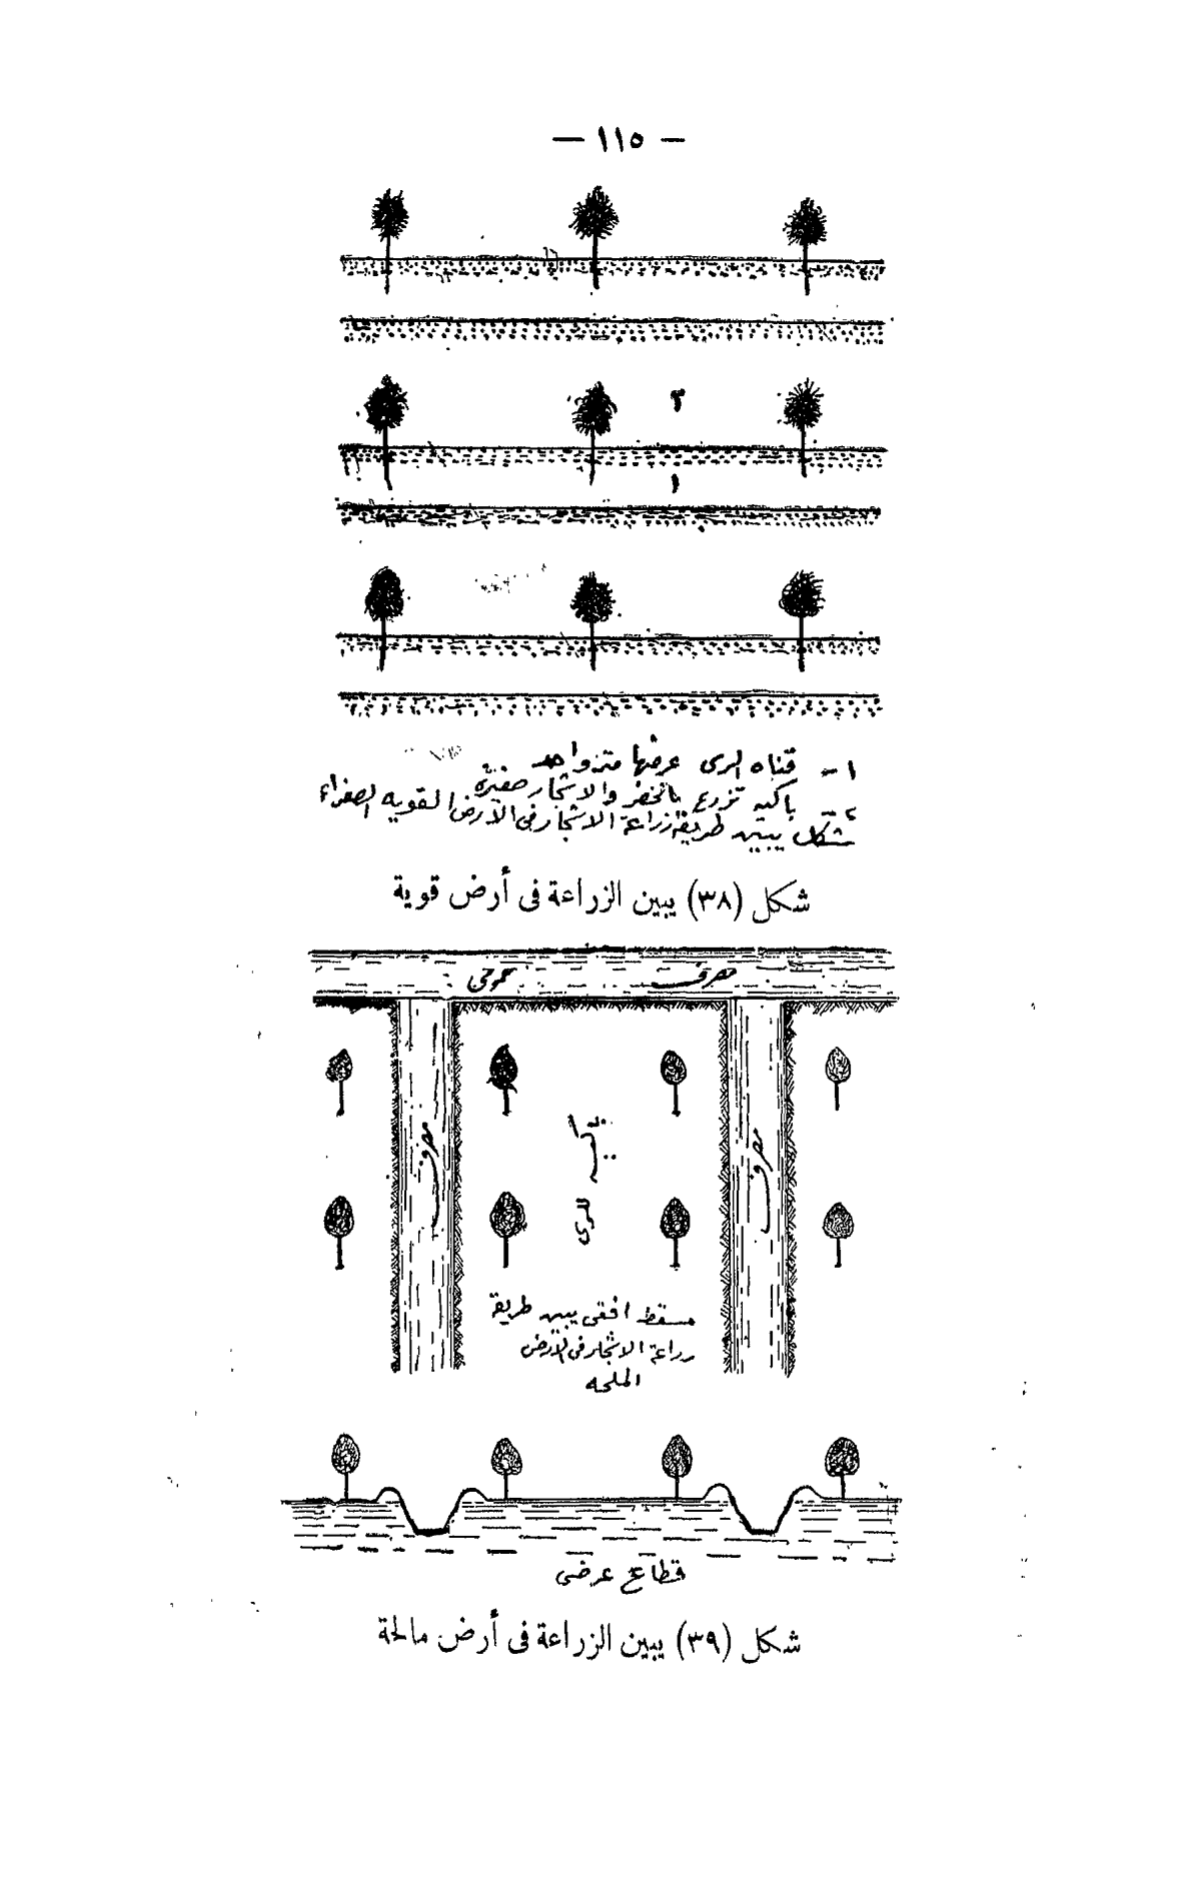 — ١١٥ —
٢
١
١ - قناه الرى عرضها متر واحد
٢ - باكيه تزرع بالخضر والاشجار صغيرة
شكل يبين طريقة زراعة الاشجار فى الأرض القويه الصفراء
شكل (٣٨) يبين الزراعة فى أرض قوية
مصرف عمومى
مصرف
باكيه للرى
مصرف
مسقط افقى يبين طريقة
زراعة الاشجار فى الأرض
الملحه
قطاع عرضى
شكل (٣٩) يبين الزراعة فى أرض مالحة